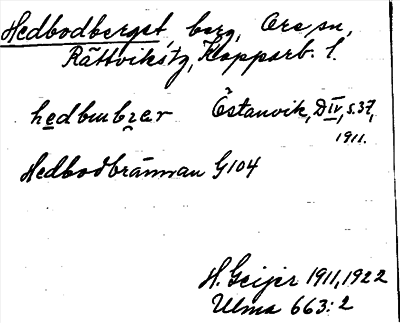 Hedbodberget, berg, Ore sn,
Rättvikstg, Kopparb. l.
hedbmbrær Östanvik, D IV, s. 37,
1911.
Hedbodbrännan G104
H. Geijer 1911, 1922
Ulma 663:2